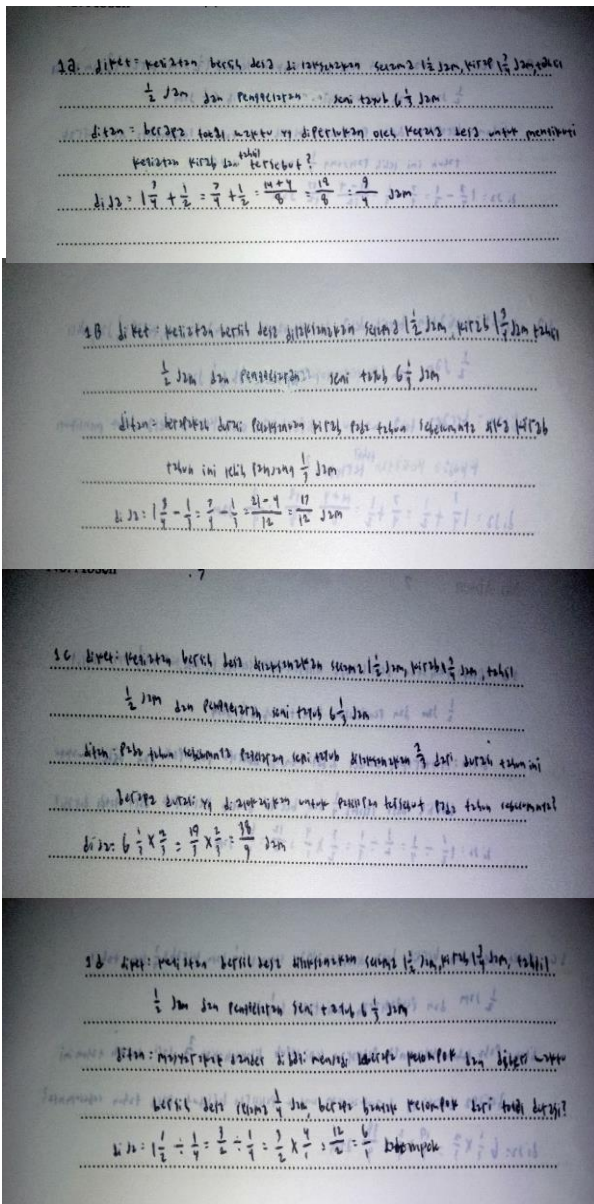 1a. diket : kegiatan bersih desa dilaksanakan selama 1 1/2 jam, kirab 1 3/4 jam, tahlil
1/2 jam dan pengelaran seni tayub 6 1/3 jam
ditan = berapa total waktu yg diperlukan oleh kepala desa untuk mengikuti
kegiatan kirab dan tahlil tersebut?
di ja = 1 3/4 + 1/2 = 7/4 + 1/2 = 14+4/8 = 18/8 = 9/4 jam
1B diket : kegiatan bersih desa dilaksanakan selama 1 1/2 jam, kirab 1 3/4 jam tahlil
1/2 jam dan pengelaran seni tayub 6 1/3 jam
ditan = berapakah durasi pelaksanaan kirab pada tahun sebelumnya jika kirab
tahun ini lebih panjang 1/3 jam
di ja : 1 3/4 - 1/3 = 7/4 - 1/3 = 21-4/12 = 17/12 jam
Absen
1c diket : kegiatan bersih desa dilaksanakan selama 1 1/2 jam, kirab 1 3/4 jam, tahlil
1/2 jam dan pengelaran seni tayub 6 1/3 jam
ditan : pada tahun sebelumnya pagelaran seni tayub dilaksanakan 2/3 dari durasi tahun ini
berapa durasi yg di untuk pagelaran tersebut pada tahun sebelumnya?
di ja : 6 1/3 x 2/3 = 19/3 x 2/3 = 38/9 jam
1d diket : kegiatan bersih desa dilaksanakan selama 1 1/2 jam, kirab 1 3/4 jam, tahlil
1/2 jam dan pengelaran seni tayub 6 1/3 jam
ditan : masyarakat dibagi menjadi beberapa kelompok dan diberi waktu
bersih desa selama 1/4 jam, berapa banyak kelompok dari total durasi?
di ja = 1 1/2 ÷ 1/4 = 3/2 ÷ 1/4 = 3/2 x 4/1 = 12/2 = 6/1 kelompok